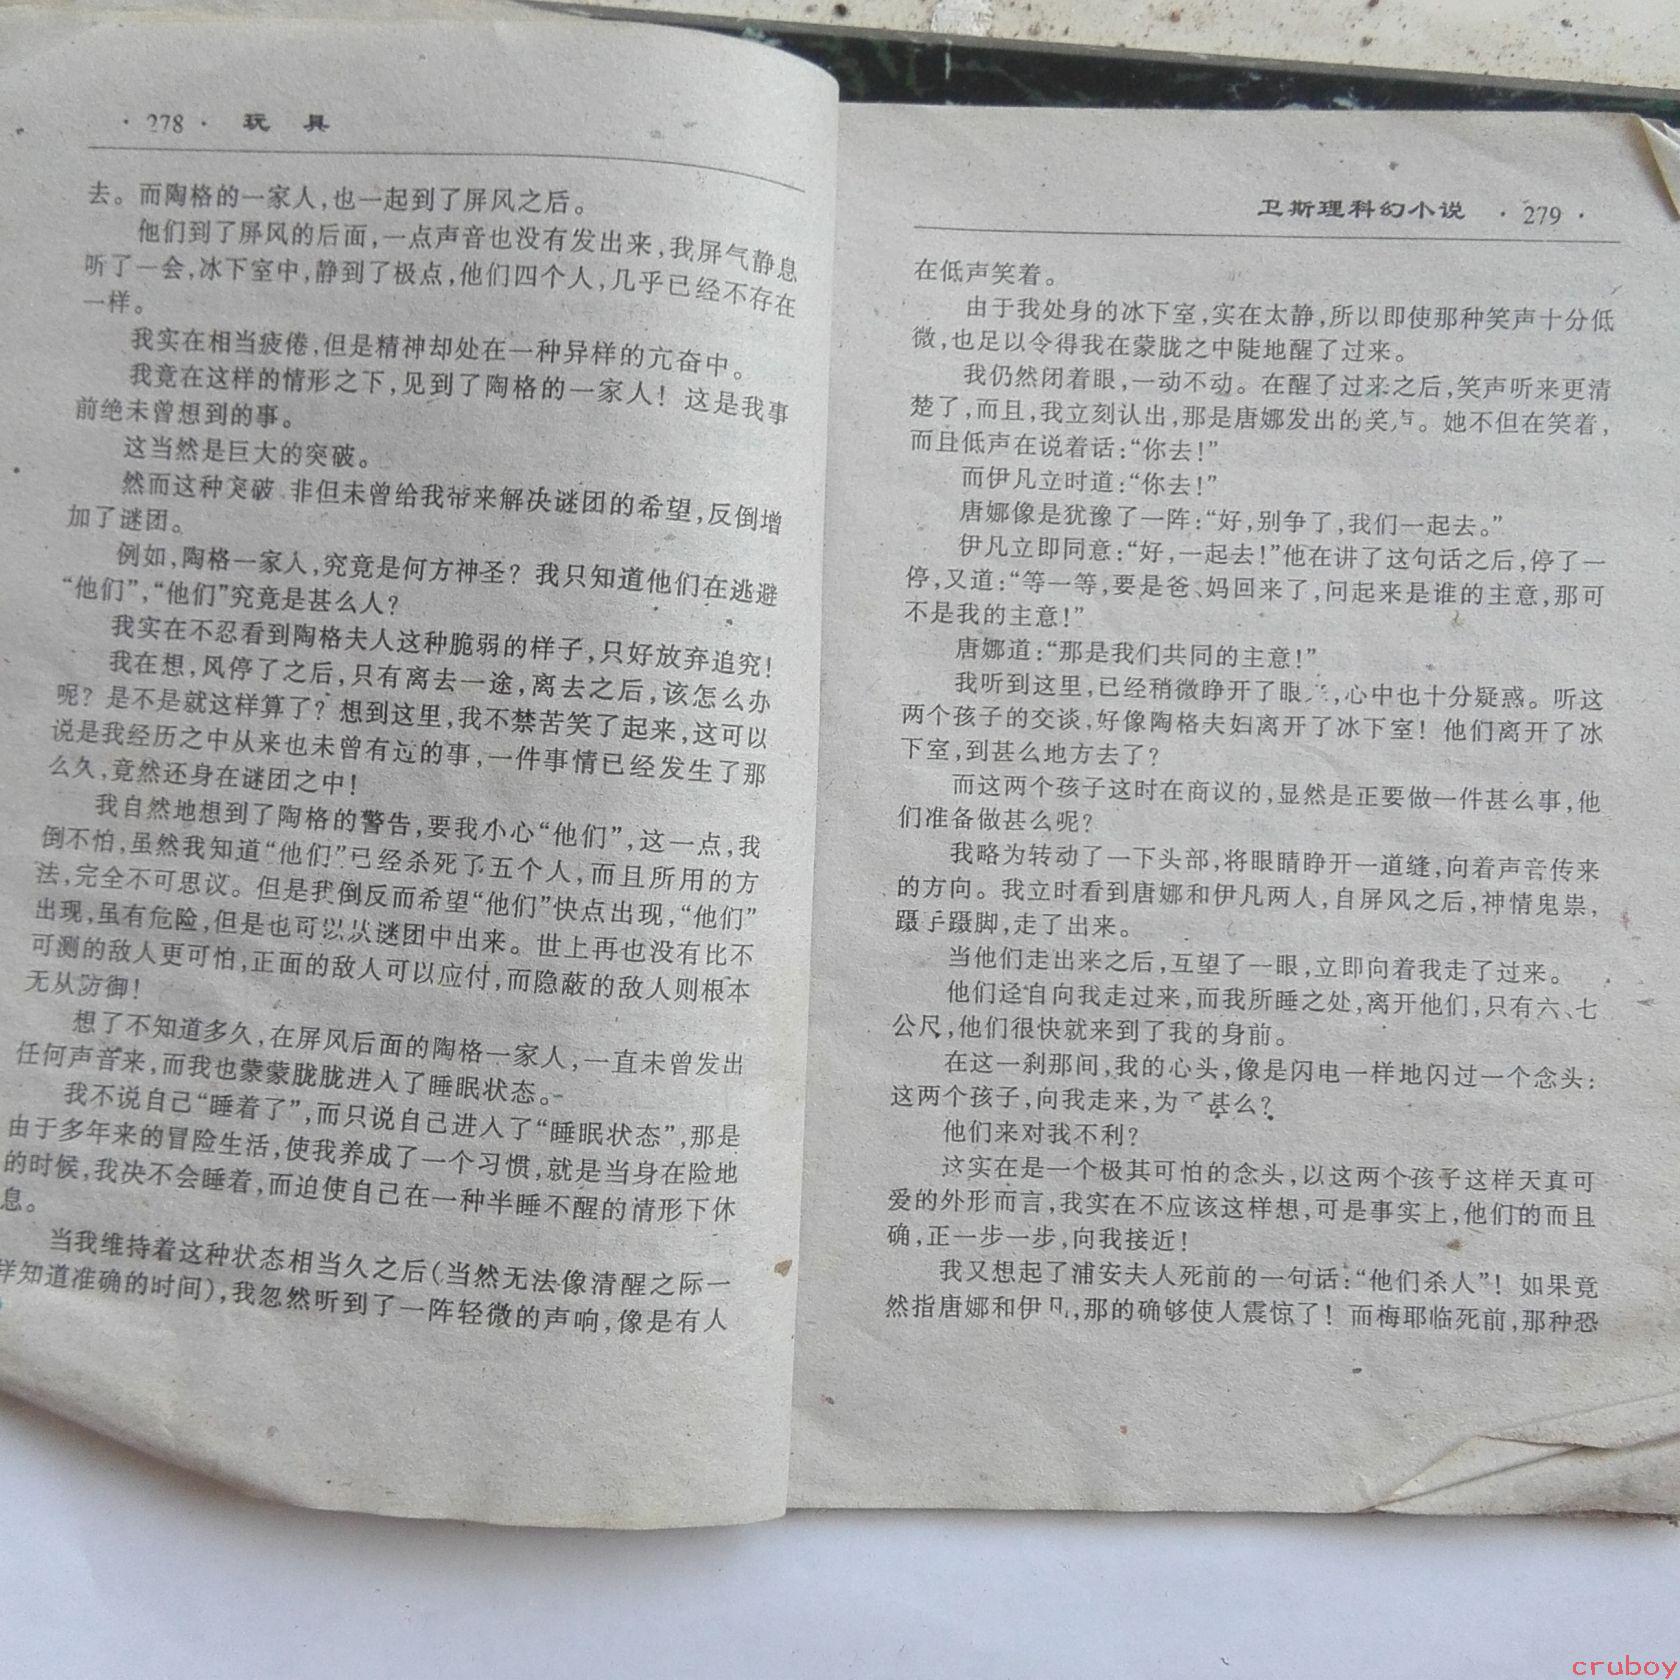 · 278 · 玩 具
去。而陶格的一家人，也一起到了屏风之后。
他们到了屏风的后面，一点声音也没有发出来，我屏气静息
听了一会，冰下室中，静到了极点，他们四个人，几乎已经不存在
一样。
我实在相当疲倦，但是精神却处在一种异样的亢奋中。
我竟在这样的情形之下，见到了陶格的一家人！这是我事
前绝未曾想到的事。
这当然是巨大的突破。
然而这种突破 非但未曾给我带来解决谜团的希望，反倒增
加了谜团。
例如，陶格一家人，究竟是何方神圣？我只知道他们在逃避
“他们”，“他们”究竟是甚么人？
我实在不忍看到陶格夫人这种脆弱的样子，只好放弃追究！
我在想，风停了之后，只有离去一途，离去之后，该怎么办
呢？是不是就这样算了？想到这里，我不禁苦笑了起来，这可以
说是我经历之中从来也未曾有过的事，一件事情已经发生了那
么久，竟然还身在谜团之中！
我自然地想到了陶格的警告，要我小心“他们”，这一点，我
倒不怕，虽然我知道“他们”已经杀死了五个人，而且所用的方
法，完全不可思议。但是我倒反而希望“他们”快点出现，“他们”
出现，虽有危险，但是也可以从谜团中出来。世上再也没有比不
可测的敌人更可怕，正面的敌人可以应付，而隐蔽的敌人则根本
无从防御！
想了不知道多久，在屏风后面的陶格一家人，一直未曾发出
任何声音来，而我也蒙蒙胧胧进入了睡眠状态。
我不说自己“睡着了”，而只说自己进入了“睡眠状态”，那是
由于多年来的冒险生活，使我养成了一个习惯，就是当身在险地
的时候，我决不会睡着，而迫使自己在一种半睡不醒的情形下休
息。
当我维持着这种状态相当久之后（当然无法像清醒之际一
样知道准确的时间），我忽然听到了一阵轻微的声响，像是有人
卫斯理科幻小说 · 279 ·
在低声笑着。
由于我处身的冰下室，实在太静，所以即使那种笑声十分低
微，也足以令得我在蒙胧之中陡地醒了过来。
我仍然闭着眼，一动不动。在醒了过来之后，笑声听来更清
楚了，而且，我立刻认出，那是唐娜发出的笑声。她不但在笑着，
而且低声在说着话：“你去！”
而伊凡立时道：“你去！”
唐娜像是犹豫了一阵：“好，别争了，我们一起去。”
伊凡立即同意：“好，一起去！”他在讲了这句话之后，停了一
停，又道：“等一等，要是爸、妈回来了，问起来是谁的主意，那可
不是我的主意！”
唐娜道：“那是我们共同的主意！”
我听到这里，已经稍微睁开了眼 ，心中也十分疑惑。听这
两个孩子的交谈，好像陶格夫妇离开了冰下室！他们离开了冰
下室，到甚么地方去了？
而这两个孩子这时在商议的，显然是正要做一件甚么事，他
们准备做甚么呢？
我略为转动了一下头部，将眼睛睁开一道缝，向着声音传来
的方向。我立时看到唐娜和伊凡两人，自屏风之后，神情鬼祟，
蹑手蹑脚，走了出来。
当他们走出来之后，互望了一眼，立即向着我走了过来。
他们迳自向我走过来，而我所睡之处，离开他们，只有六、七
公尺，他们很快就来到了我的身前。
在这一刹那间，我的心头，像是闪电一样地闪过一个念头：
这两个孩子，向我走来，为了甚么？
他们来对我不利？
这实在是一个极其可怕的念头，以这两个孩子这样天真可
爱的外形而言，我实在不应该这样想，可是事实上，他们的而且
确，正一步一步，向我接近！
我又想起了浦安夫人死前的一句话：“他们杀人”！如果竟
然指唐娜和伊凡，那的确够使人震惊了！而梅耶临死前，那种恐
cruboy